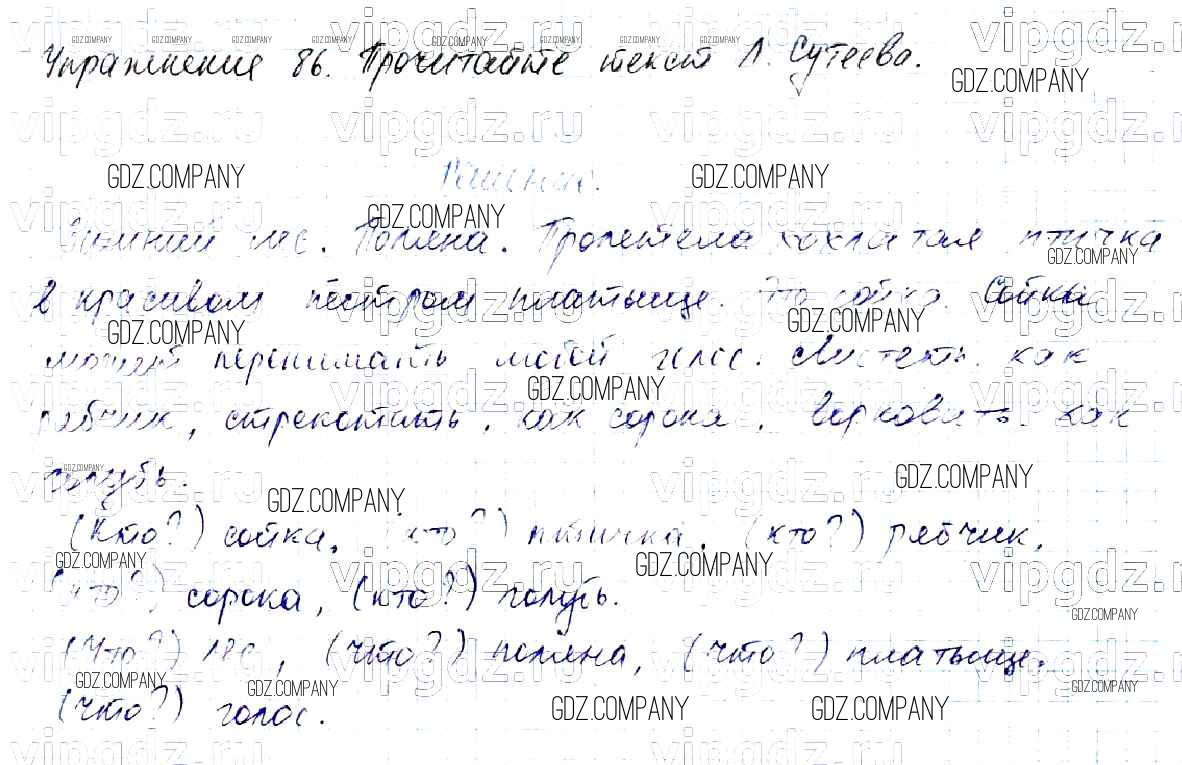 Упражнение 86. Прочитайте текст Л. Сутеева.
Решение.
Зимний лес. Поляна. Пролетела хохлатая птичка
в красивом пёстром платьице. Это сойка. Сойка
может перенимать любой голос. Свистеть как
рябчик, стрекотать, как сорока, ворковать как
голубь.
(Кто?) сойка, (кто?) птичка, (кто?) рябчик,
(кто?) сорока, (кто?) голубь.
(Что?) лес, (что?) поляна, (что?) платьице,
(что?) голос.
vipgdz.ru
GDZ.COMPANY